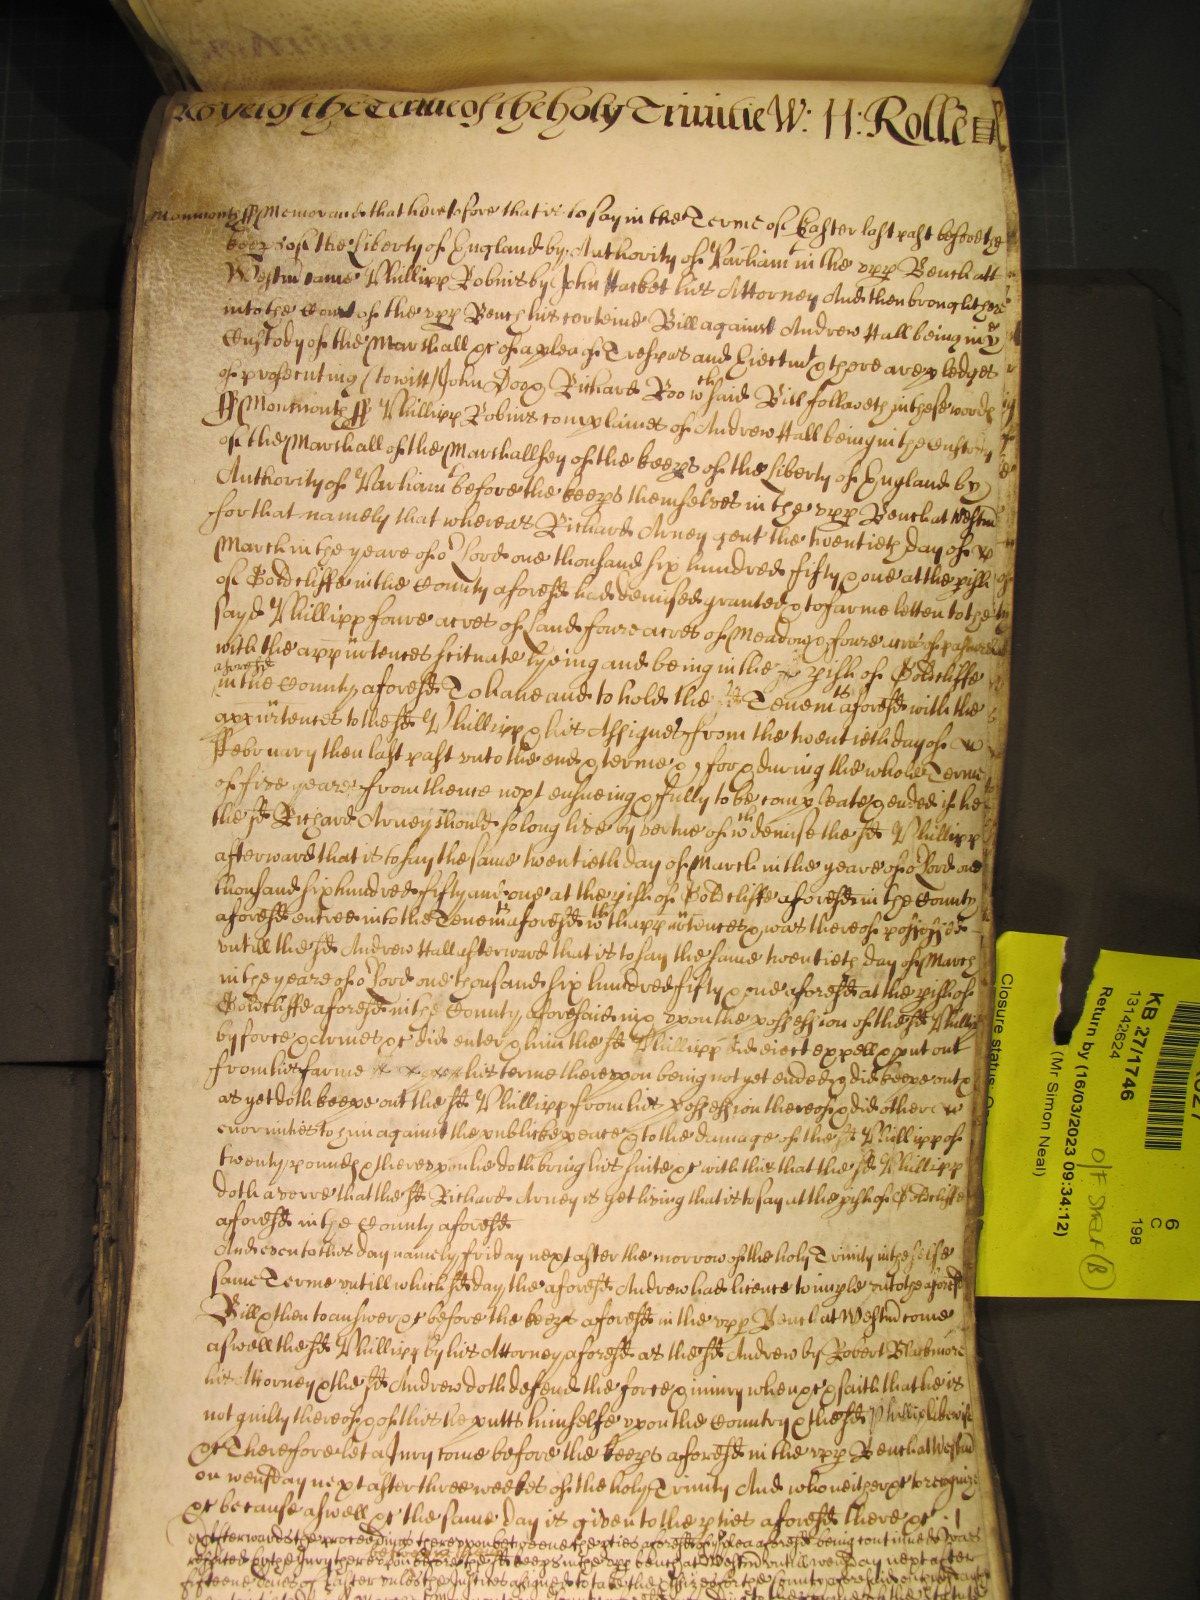 yet of the Terme of the holy Trinitie W: H: Rolle
Monmouth ss Memorand that heretofore that is to say in the Terme of Easter last past before the
keeps of the Liberty of England by Authority of Parliamt in the vpp Bench att
Westm came Phillipp Robins by John Hacket his Attorney And then brought here
into the Court of the vpp Bench his certeine Bill against Andrew Hall being in ye
Custody of the Marshall &c of a plea of Trespas and Eiectmt & there are pledges
of prosecuting (to witt) John Doo & Richard Roo wch said Bill followeth in these words
ss Monmouth ss Phillipp Robins complaines of Andrew Hall being in the custody
of the Marshall of the Marshallsey of the keeps of the Liberty of England by
Authority of Parliamt before the keeps themselves in the vpp Bench at Westm
for that namely that whereas Richard Arney gent the twentieth day of
March in the yeare of or Lord one thousand six hundred fifty & one at the pish
of Goldcliffe in the County aforesd had demised granted & to farme letten to the
sayd Phillipp foure acres of Land foure acres of Meadow & foure acres of pasture
with the appurtences scituate lyeing and being in the pish of Goldcliffe
aforesd
in the County aforesd To haue and to hold the Tenemts aforesd with the
appurtences to the sd Phillipp & his Assignes from the twentieth day of
ffebruary then last past vnto the end & terme & for & during the whole Terme
of five yeares from thence next ensueing & fully to be compleate & ended if he
the sd Richard Arney should so long live by vertue of wch demise the sd Phillipp
afterward that is to say the same twentieth day of March in the yeare of or Lord one
thousand six hundred fifty and one at the pish of Goldcliffe aforesd in the County
aforesd entred into the Tenemts aforesd wth thappurtences & was thereof possessed
vntill the sd Andrew Hall afterward that is to say the same twentieth day of March
in the yeare of or Lord one thousand six hundred fifty & one aforesd at the pish of
Goldcliffe aforesd in the County aforesaid in & vpon the possession of the sd Phillip
by force & armes &c did enter & him the sd Phillipp did eiect expell & put out
from his farme his terme therevpon being not yet ended & did keepe out &
as yet doth keepe out the sd Phillipp from his possession thereof & did other
enormities to him against the publicke peace & to the damage of the sd Phillipp of
twenty pounds & therevpon he doth bring his suite &c with this that the sd Phillipp
doth averre that the sd Richard Arney is yet living that is to say at the pish of Goldcliffe
aforesd in the County aforesd
And even to this day namely friday next after the morrow of the holy Trinity in the selfe
same Terme vntill which sd day the aforesd Andrew had licence to imple vnto the aforesd
Bill & then to answer &c before the keeps aforesd in the vpp Bench at Westm come
aswell the sd Phillipp by his Attorney aforesd as the sd Andrew by Robert Blakmore
his Attorney & the sd Andrew doth defend the force & iniury when &c & saith that he is
not guilty thereof & of this he putts himselfe vpon the Country & the sd Phillip likewise
&c Therefore let a Jury come before the keeps aforesd in the vpp Bench at Westm
on wensday next after three weekes of the holy Trinity And who neither &c to recognize
&c because aswell &c the same day is given to the pties aforesd there &c
Afterwards the proceedings therevpon betweene the pties aforesd of the plea aforesd being continued was
respited by the Jury therevpon before the sd keeps in the vpp bench at Westm vntill wensday next after
fifteene daies of Easter vnles the Justices assigned to take the Assizes for the County aforesaid
Closure status:
KB 27/1746
13142624
Return by (16/03/2023 09:34:12)
(Mr Simon Neal)
6
C
198
O/F Shelf (B)